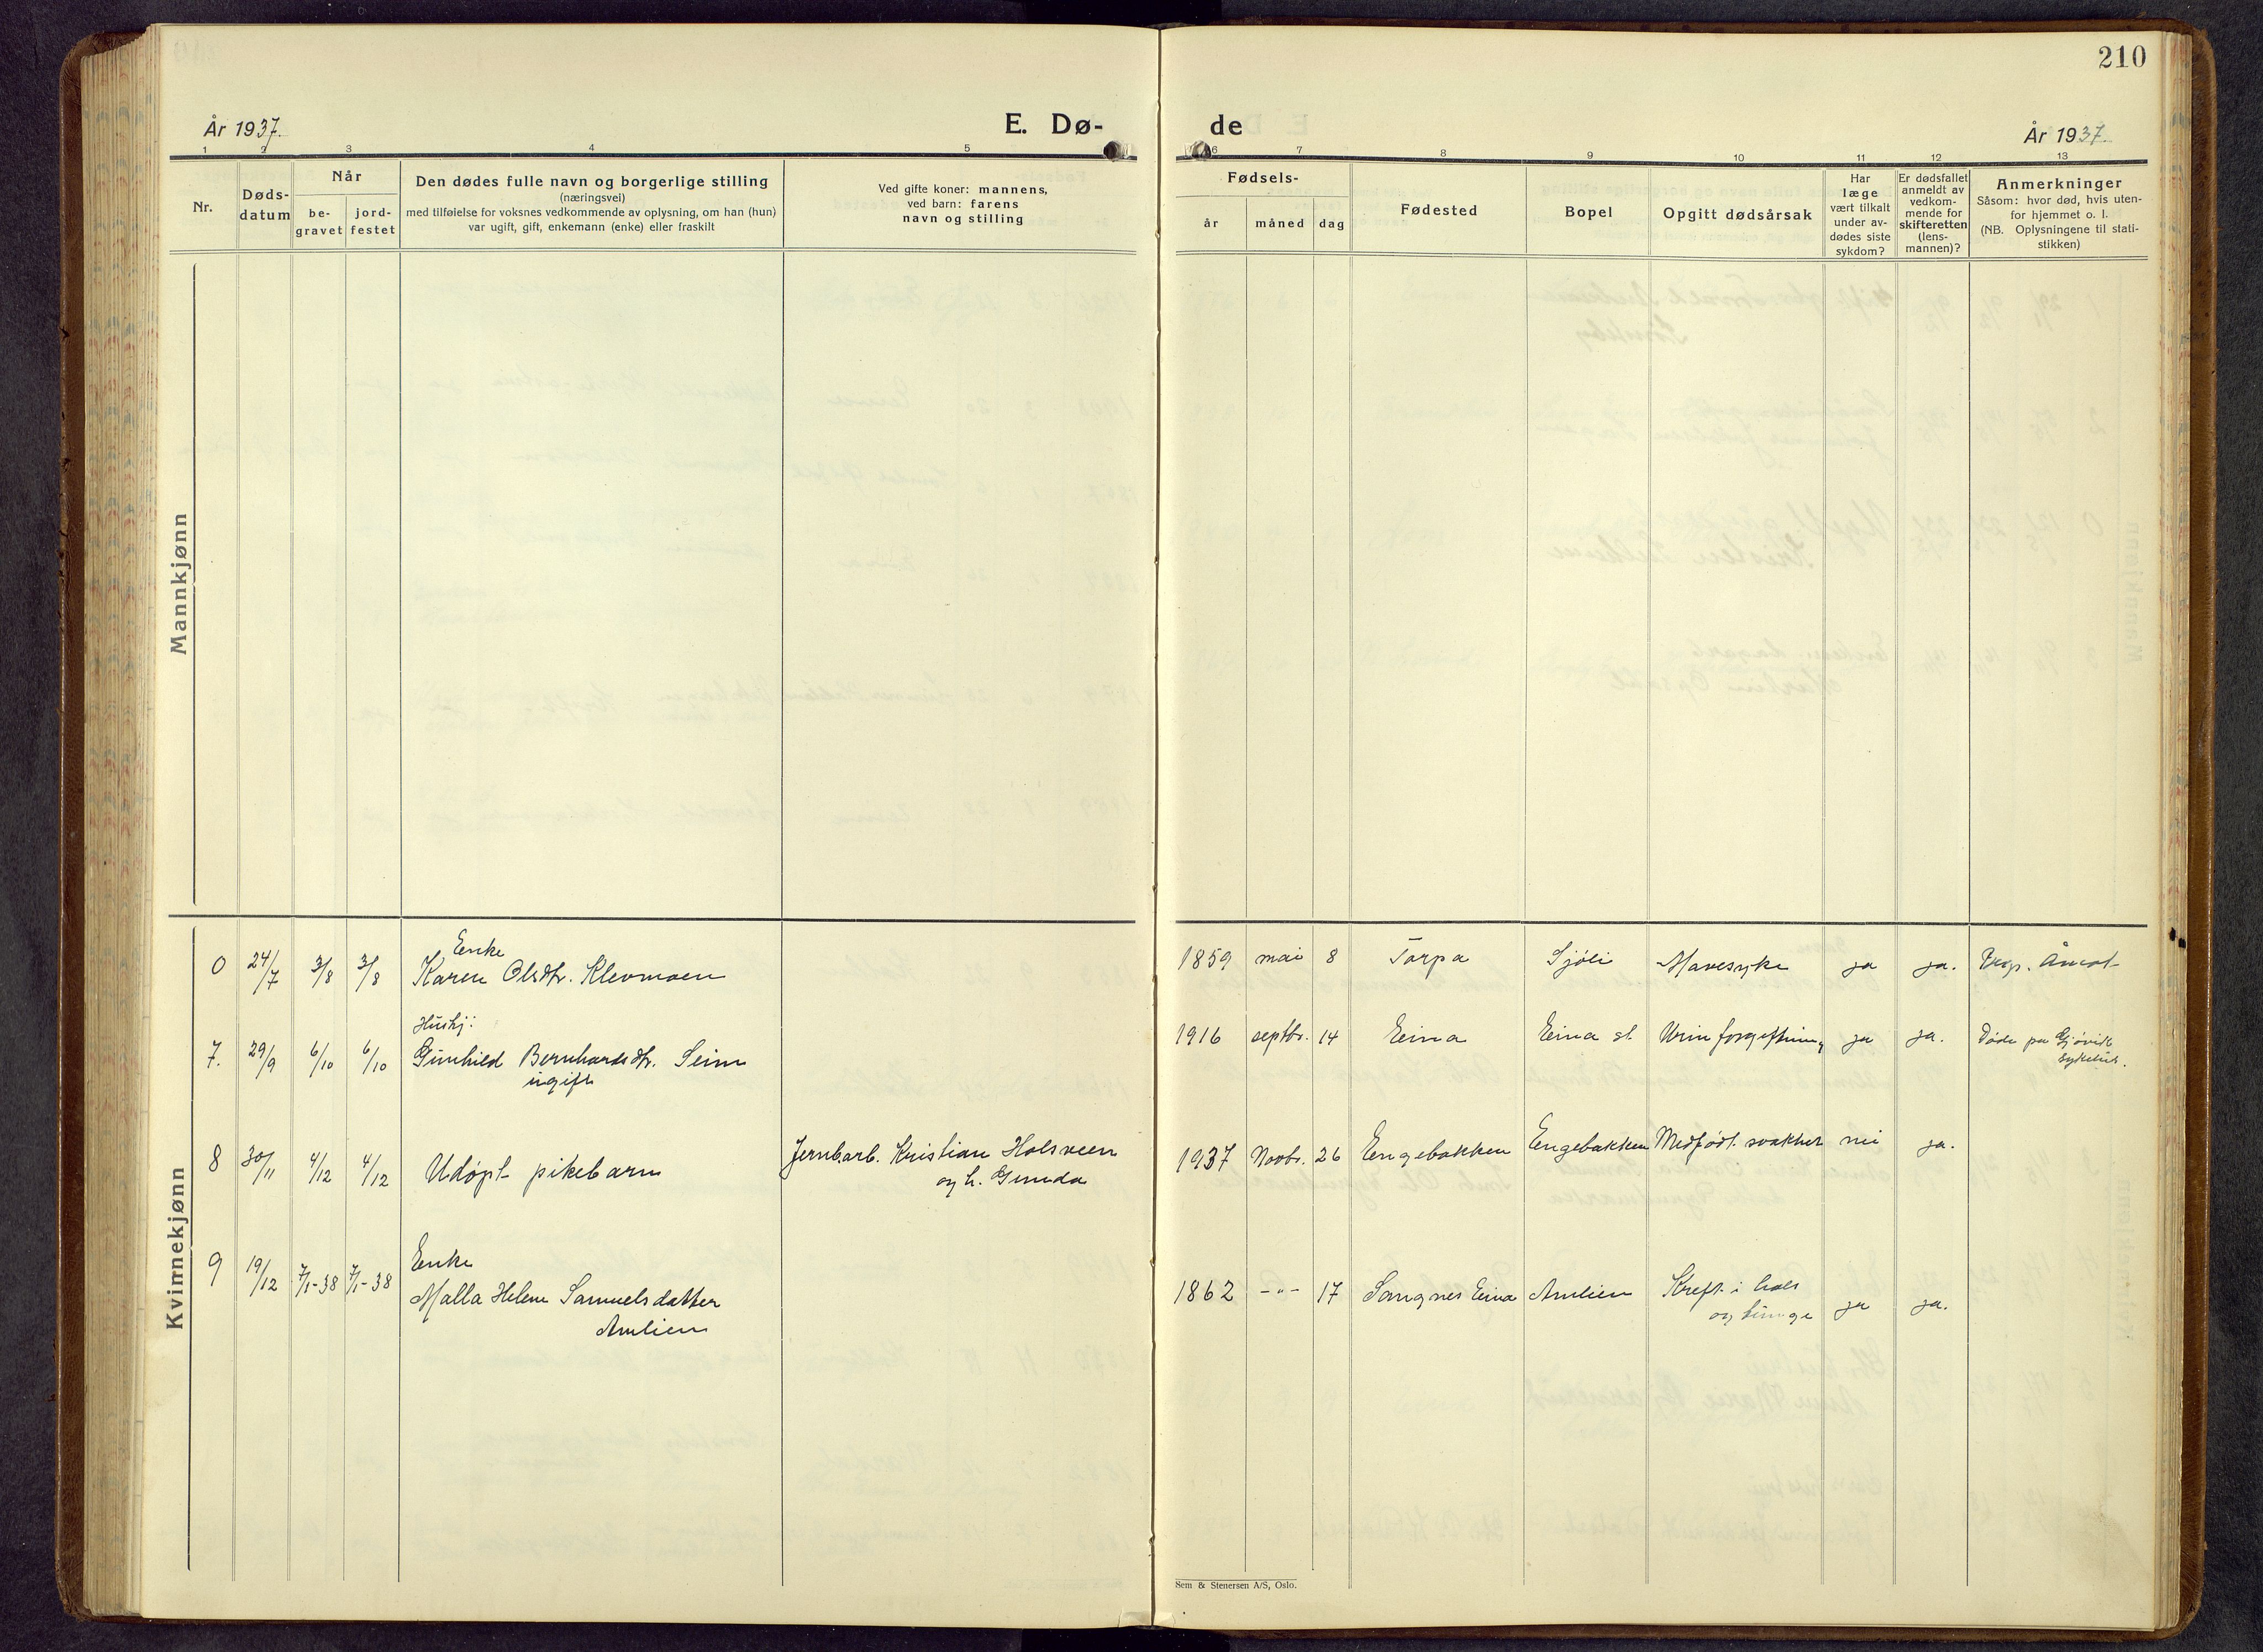 210
År 1937.
E. Dø-
de
År 1937.
1 2 3 4 5
6 7 8 9 10 11 12 13
Nr.
Døds-
datum
Når
be-
gravet
jord-
festet
Den dødes fulle navn og borgerlige stilling
(næringsvei)
med tilføielse for voksnes vedkommende av oplysning, om han (hun)
var ugift, gift, enkemann (enke) eller fraskilt
Ved gifte koner: mannens,
ved barn: farens
navn og stilling
Fødsels-
år
måned
dag
Fødested
Bopel
Opgitt dødsårsak
Har
læge
vært tilkalt
under av-
dødes siste
sykdom?
Er dødsfallet
anmeldt av
vedkom-
mende for
skifteretten
(lens-
mannen)?
Anmerkninger
Såsom: hvor død, hvis uten-
for hjemmet o. l.
(NB. Oplysningene til stati-
stikken)
Mannkjønn
Kvinnekjønn
Enke
0 24/7 3/8 3/8 Karen Olsdtr. Klevmoen 1859 mai 8 Torpa Sjöli Mavesyke ja ja.
Hushj:
7. 29/9 6/10 6/10 Gunhild Bernhardsdtr. Seim 1916 septbr. 14 Eina Eina st. Urinforgiftning ja ja. Døde på Gjøvik
ugift sykehus.
8 30/11 4/12 4/12 Udøpt pikebarn Jernb.arb. Kristian Holsveen 1937 Novbr. 26 Engebakken Engebakken Medfødt svakhet nei ja.
og h. Gunda
Enke
9 19/12 7/1-38 7/1-38 Malla Helene Samuelsdatter 1862 -"- 17 Sangnes Eina Amlien Kreft i hals
Amlien og tunge ja ja.
Sem & Stenersen A/S, Oslo.